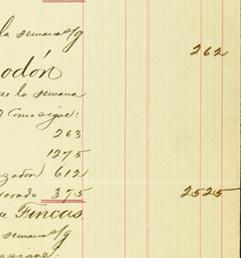 la semana s/g
262
odón
de la semana
como sigue:
263
1275
zador) 612
orado 375 2525
Fincas
semana s/g